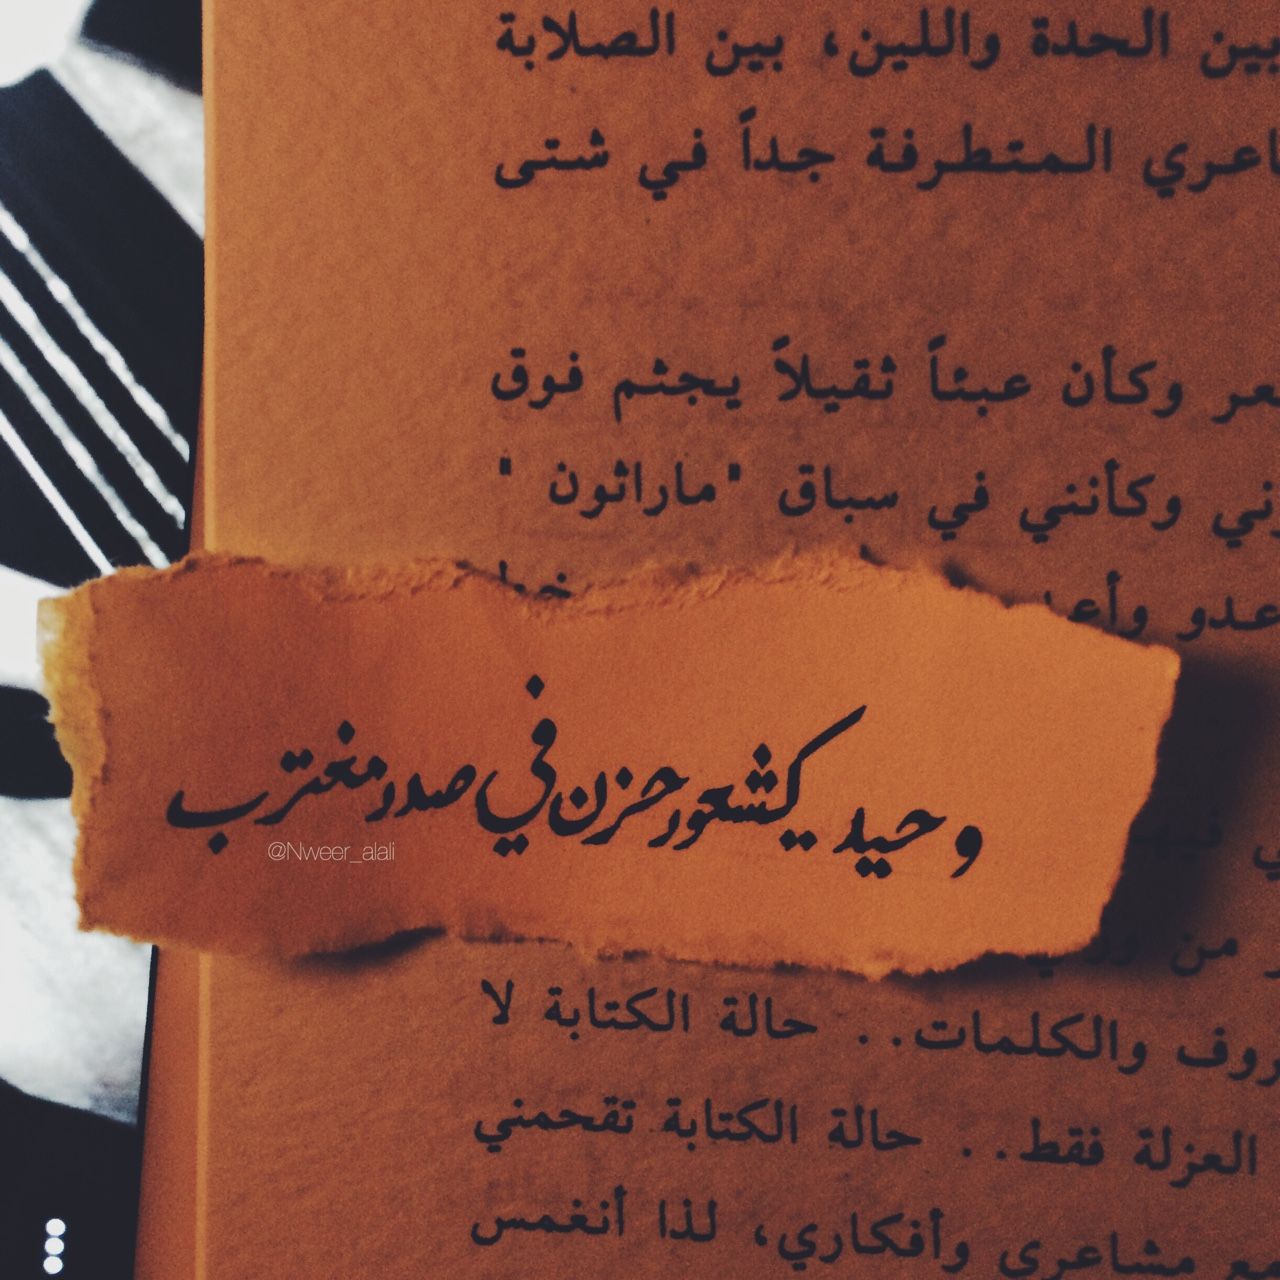 بين الحدة واللين، بين الصلابة
المتطرفة جداً في شتى
وكأن عبئاً ثقيلاً يجثم فوق
وكأنني في سباق "ماراثون "
وحيد كشعور حزن في صدر مغترب
@Nweer_alali
من
والكلمات.. حالة الكتابة لا
العزلة فقط.. حالة الكتابة تقحمني
مشاعري وأفكاري، لذا أنغمس